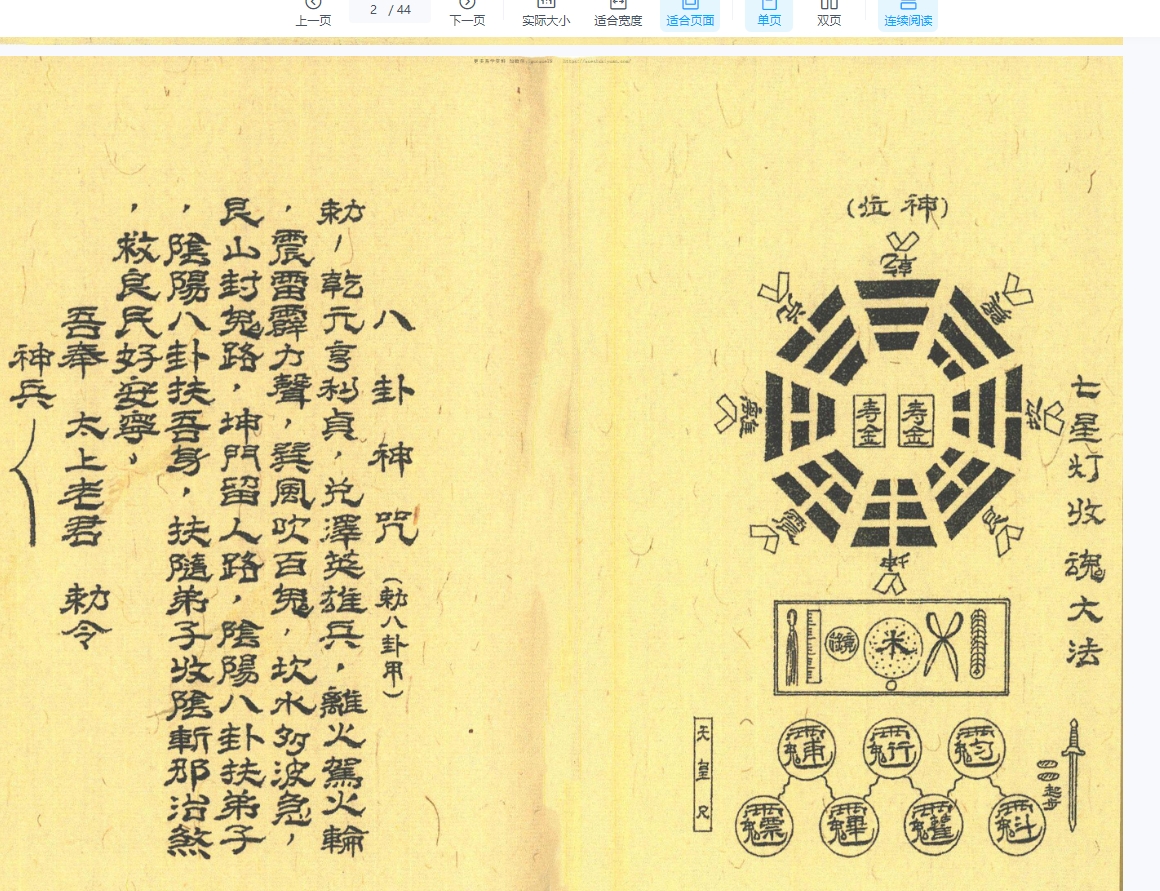 上一页
2 / 44
下一页
实际大小
适合宽度
适合页面
单页
双页
连续阅读
七星灯收魂大法
(神位)
乾
兌
巽
離
坎
震
艮
坤
寿金
寿金
米
鏡
天皇尺
起步
八卦神咒(勅八卦甲)
勅，乾元亨利貞，兌澤英雄兵，離火駕火輪
，震雷霹力聲，巽風吹百鬼，坎水波急，
艮山封鬼路，坤門留人路，陰陽八卦扶弟子
，陰陽八卦扶吾身，扶隨弟子收陰斬邪治煞
，救良民好安寧，
吾奉 太上老君 勅令
神兵